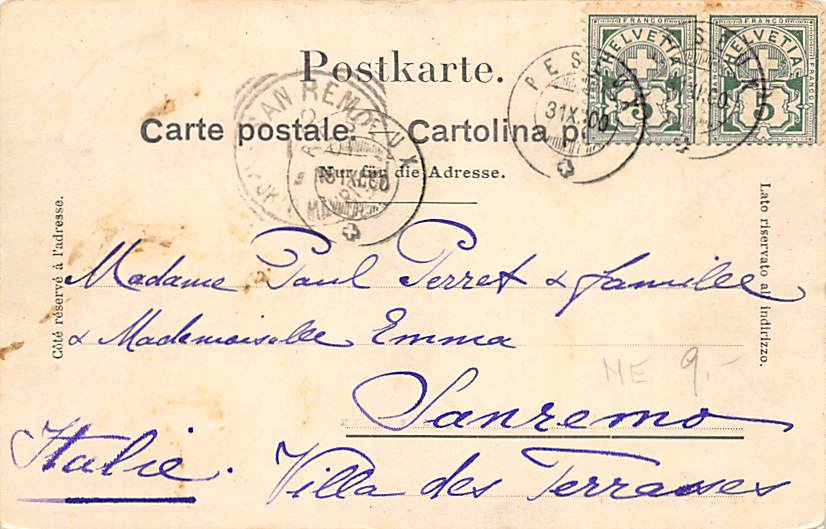 Postkarte.
Carte postale. Cartolina p
Nur für die Adresse.
Côté réservé à l'adresse.
Lato riservato all indirizzo.
FRANCO
HELVETIA
5
FRANCO
HELVETIA
5
PESEUX
31 X. 00
SAN REMO
PESEUX
Madame Paul Perret & famille
& Mademoiselle Emma
ME 9.-
Sanremo
Italie. Villa des Terrasses